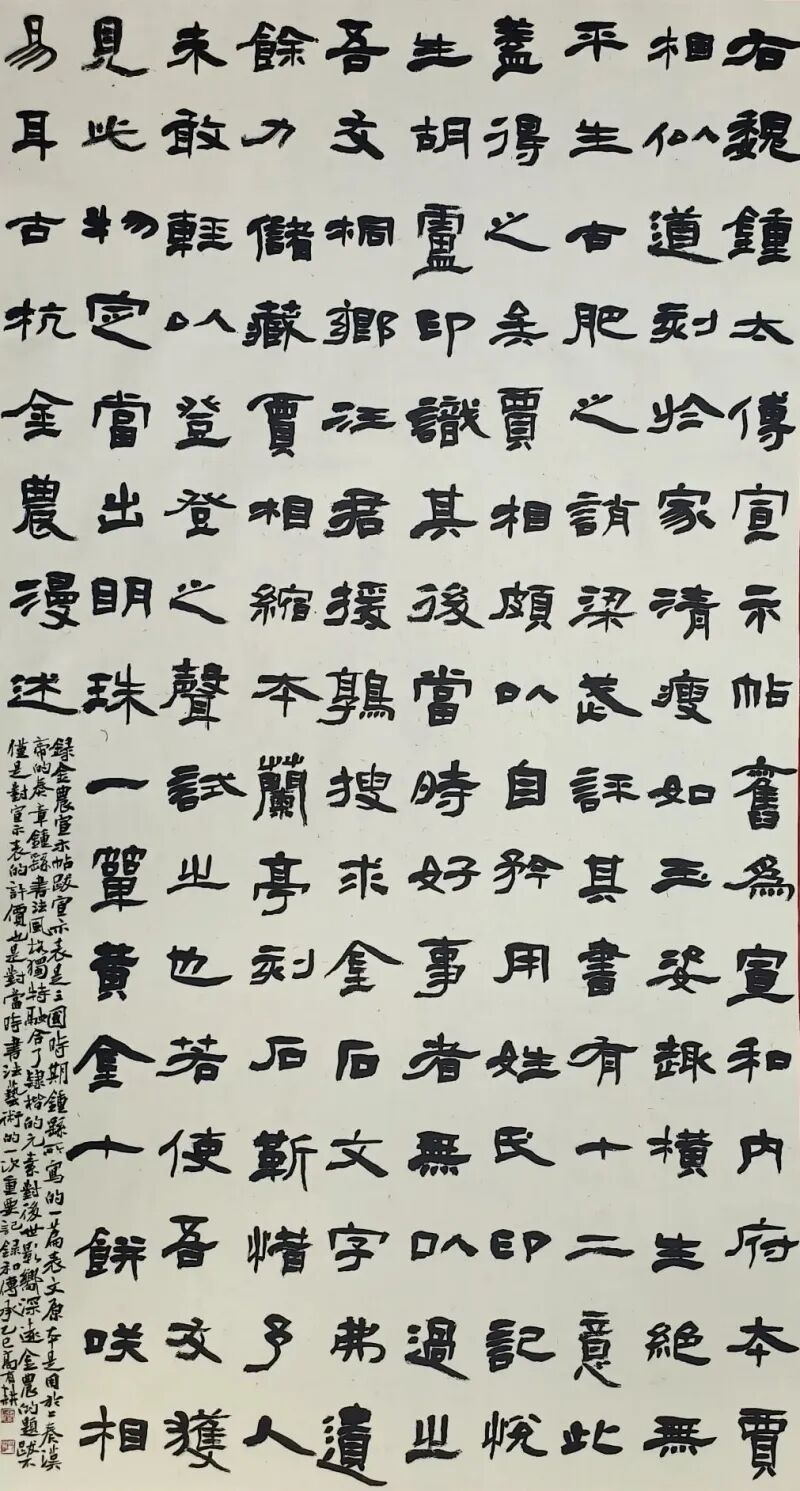 右魏鍾太傅宣示帖舊爲宣和内府本賈
相似道刻於家清瘦如玉姿趣橫生絕無
平生古肥之誚梁武評其書有十二意此
蓋得之矣賈相頗以自矜用姓氏印記悅
生胡盧印識其後當時好事者無以過之
吾友桐鄉汪君援鶉搜求金石文字弗遺
餘力儲藏賈相縮本蘭亭刻石靳惜予人
未敢輕以登登之聲試之也若使吾友獲
見此物定當出明珠一簞黃金十餅咲相
易耳古杭金農漫述
錄金農宣示帖跋宣示表是三國時期鍾繇所寫的一篇表文原本是用於上奏漢
帝的奏章鍾繇書法風格獨特融合了隸楷的元素對後世影響深遠金農的題跋不
僅是對宣示表的評價也是對當時書法藝術的一次重要記錄和傳承乙巳